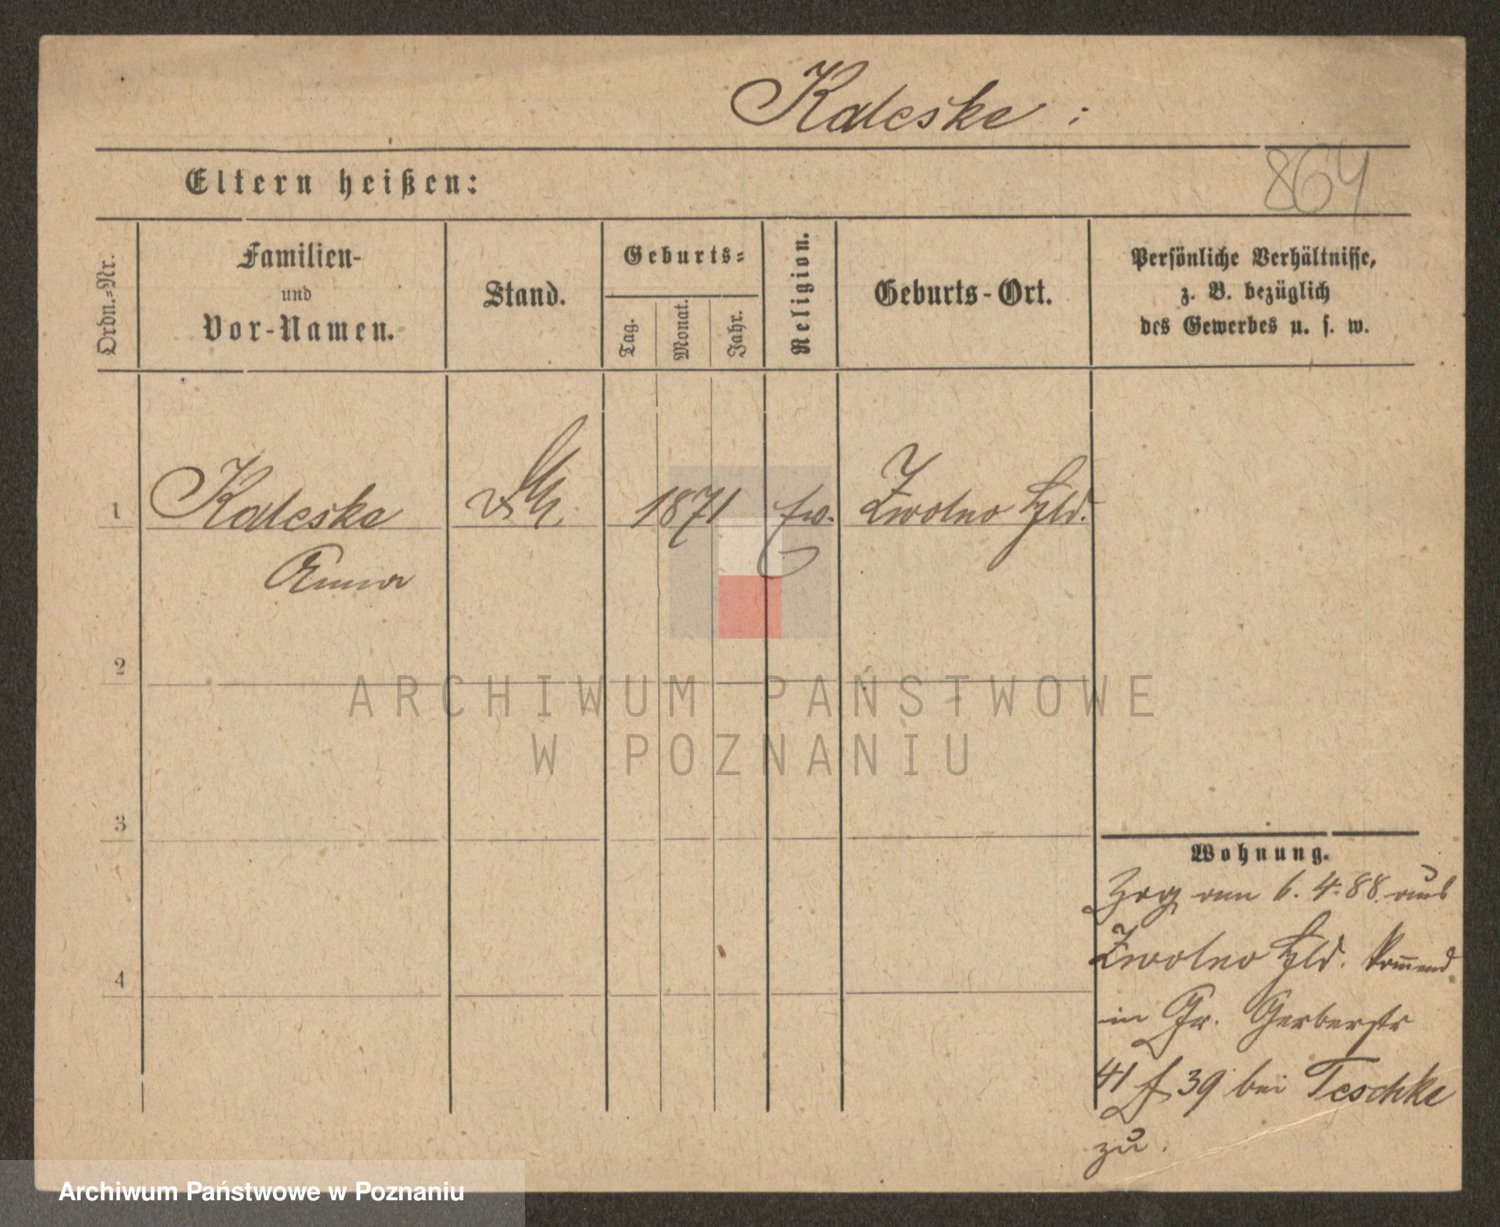 Kaleske :
Eltern heißen:
864
Ordn.-Nr.
Familien-
und
Vor-Namen.
Stand.
Geburts-
Tag.
Monat.
Jahr.
Religion.
Geburts-Ort.
Persönliche Verhältnisse,
z. B. bezüglich
des Gewerbes u. s. w.
1 Kaleske 1871 ev. Zwolno Hld.
Anna
2
3
4
ARCHIWUM PAŃSTWOWE
W POZNANIU
Wohnung.
Zog am 6. 4. 88. aus
Zwolno Hld. kommend
in Gr. Gerberstr
41 f 39 bei Teschke
zu.
Archiwum Państwowe w Poznaniu